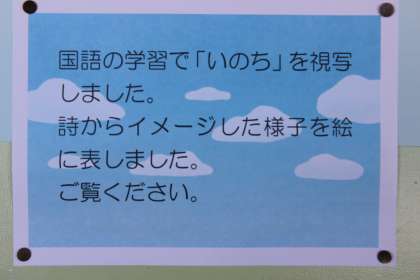 国語の学習で「いのち」を視写
しました。
詩からイメージした様子を絵
に表しました。
ご覧ください。